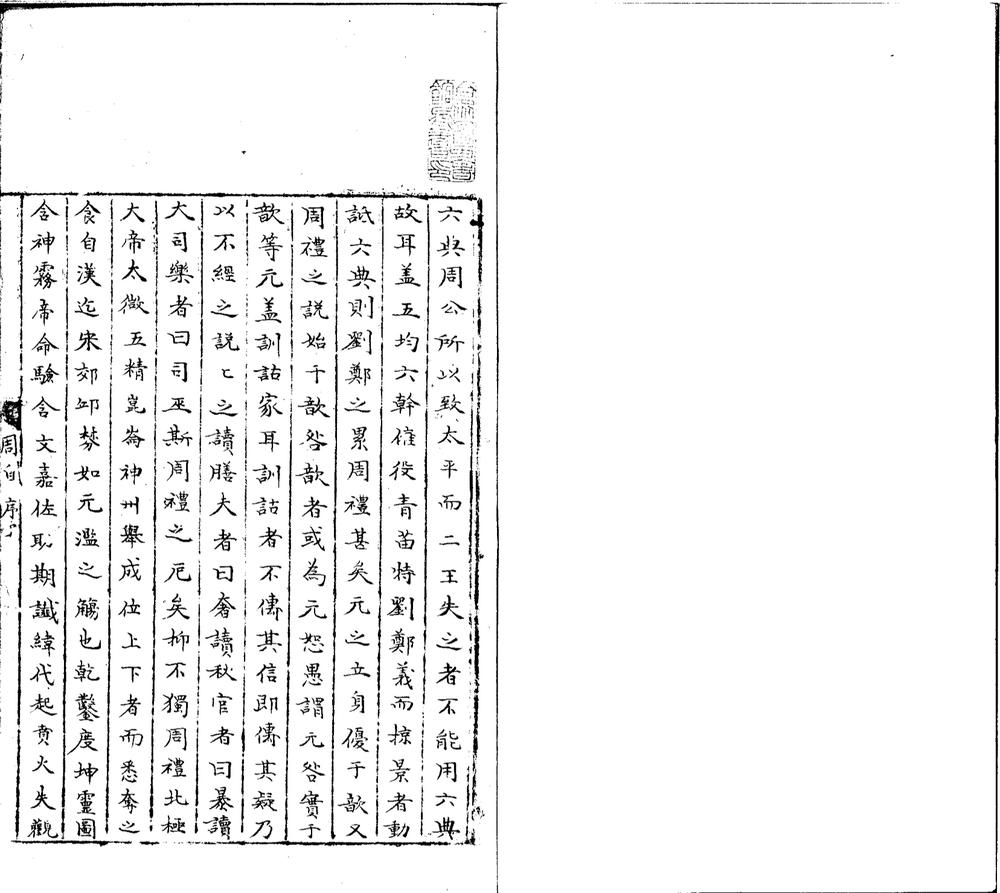 六典周公所以致太平而二王失之者不能用六典
故耳盖五均六幹傕役青苗特劉鄭義而掠景者動
詆六典則劉鄭之累周禮甚矣元之立身優于歆又
周禮之説始于歆咎歆者或為元恕愚謂元咎實于
歆等元盖訓詁家耳訓詁者不俦其信即俦其疑乃
以不經之説〻之讀膳夫者曰奢讀秋官者曰暴讀
大司樂者曰司巫斯周禮之厄矣抑不獨周禮北極
大帝太微五精崑崙神州舉成位上下者而悉奪之
食自漢迄宋郊邱棼如元濫之觴也乾鑿度坤靈圖
含神霧帝命驗含文嘉佐助期讖緯代起賁火失觀
序